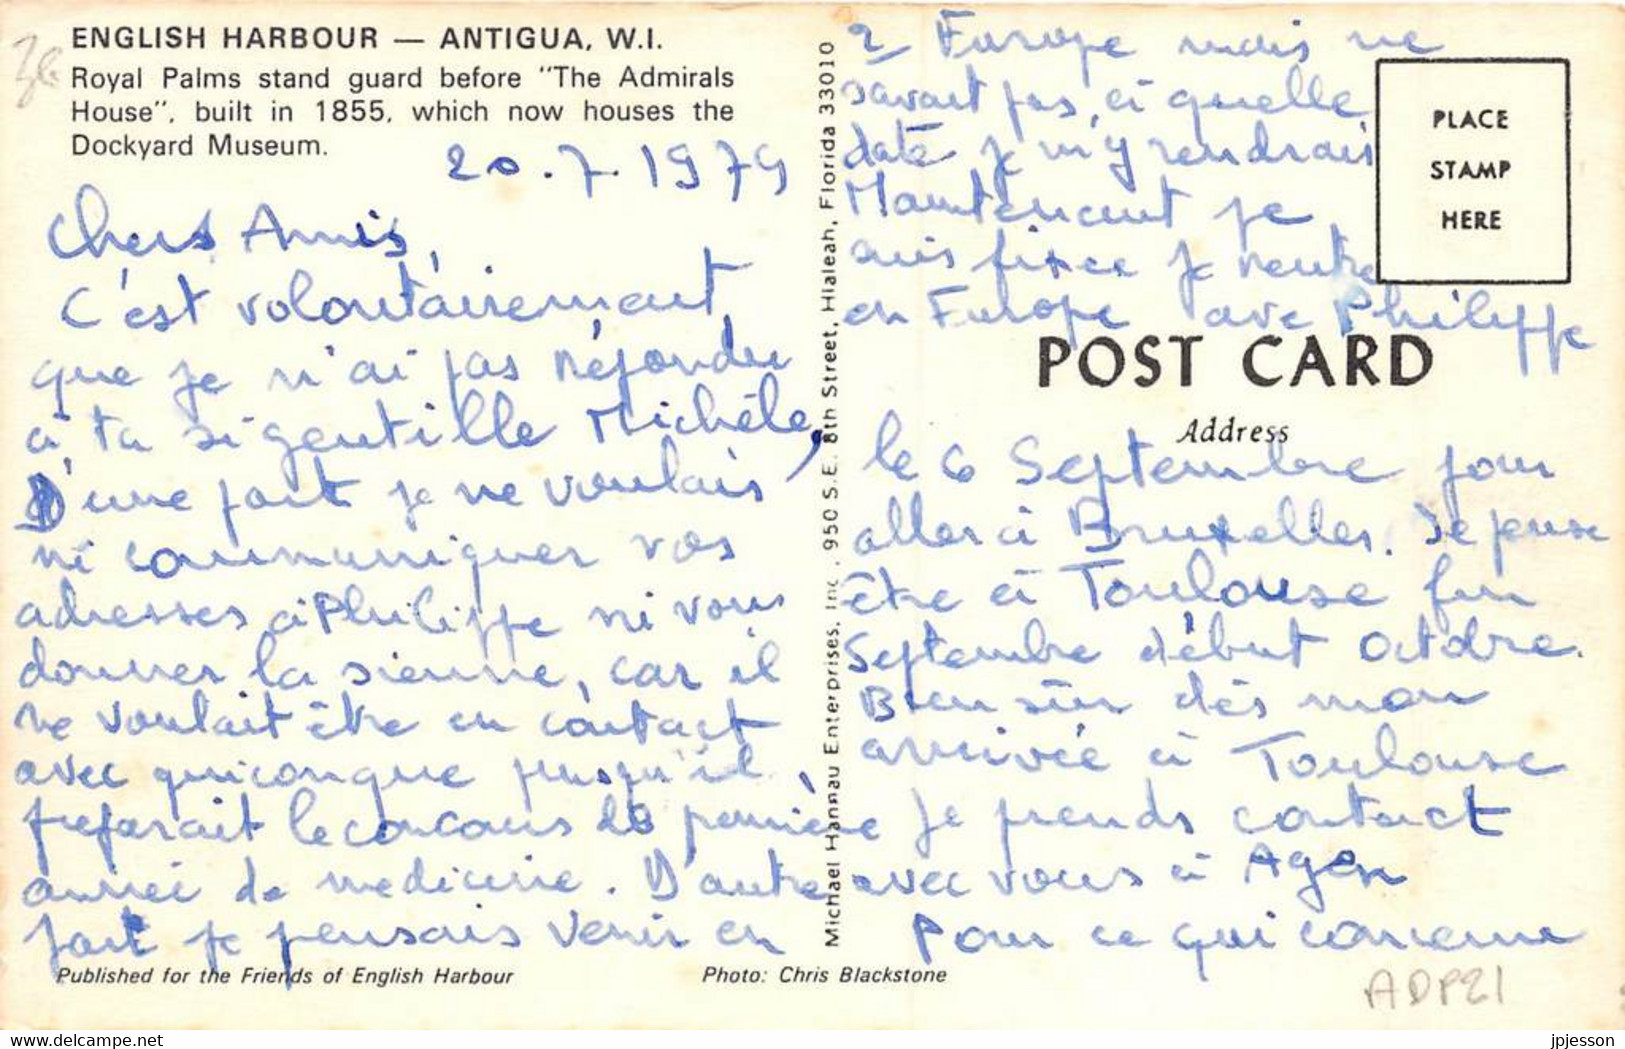 ENGLISH HARBOUR — ANTIGUA, W.I.
Royal Palms stand guard before "The Admirals
House", built in 1855, which now houses the
Dockyard Museum.
20.7.1979
Chers Amis,
C'est volontairement
que je n'ai pas répondu
à ta si gentille Michéle,
D'une part je ne voulais
ni communiquer vos
adresses à Philippe ni vous
donner la sienne, car il
ne voulait être en contact
avec quiconque jusqu'il
preparait le concours de première
année de medicine. D'autre
part je pensais venir en
Published for the Friends of English Harbour
Photo: Chris Blackstone
Michael Hannau Enterprises, Inc., 950 S.E. 8th Street, Hialeah, Florida 33010
2 Europe mais ne
savait pas, à quelle
date je m'y rendrais
Maintenant je
suis fixee je rentre
en Europe avec Philippe
PLACE
STAMP
HERE
POST CARD
Address
le 6 Septembre pour
aller à Bruxelles. Je pense
être à Toulouse fin
Septembre début Octobre.
Bien sûr dès mon
arrivée à Toulouse
je prends contact
avec vous à Agen
Pour ce qui concerne
ADP21
delcampe.net
jpjesson